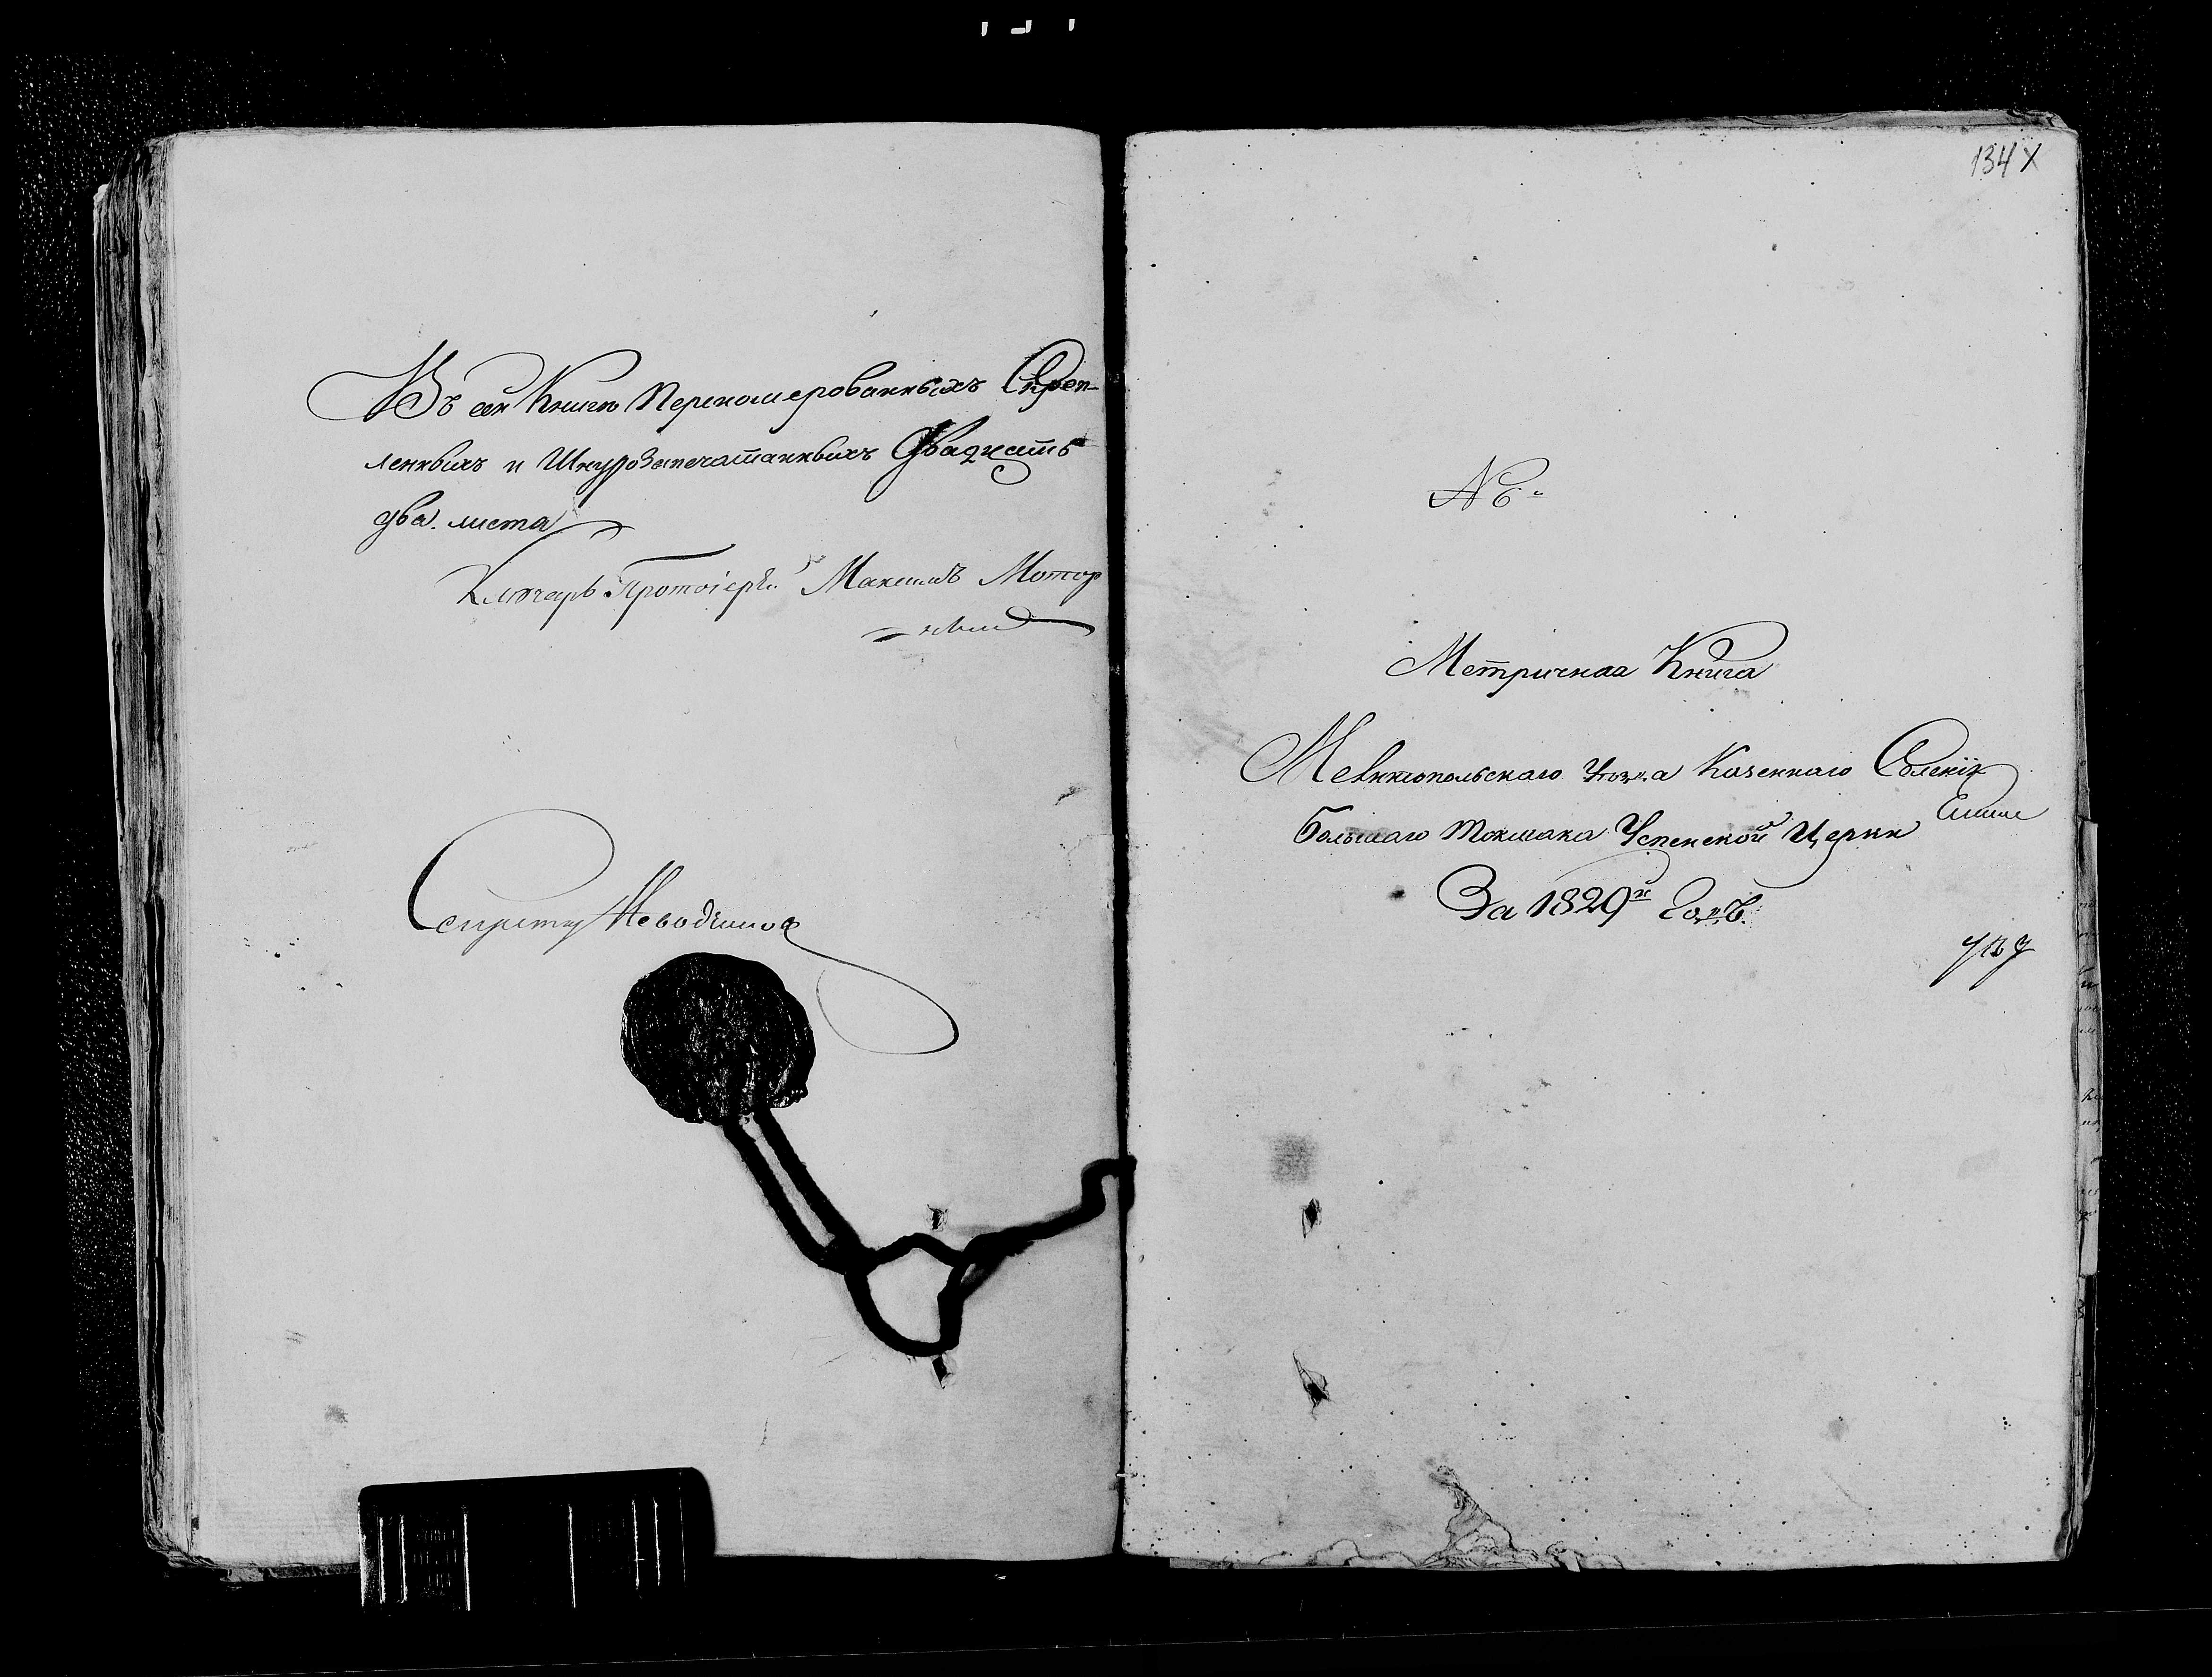 Въ сей Книгѣ Перенумерованныхъ Скреп-
ленныхъ и Шнурозапечатанныхъ Двадцать
два листа
Ключарь Протоіерей Максимъ
Секретарь
134 X
№
Метричная Книга
Мелитопольскаго Уѣзда Казеннаго Селенія
Большаго Токмака Успенской Церкви
За 1829й Годъ.